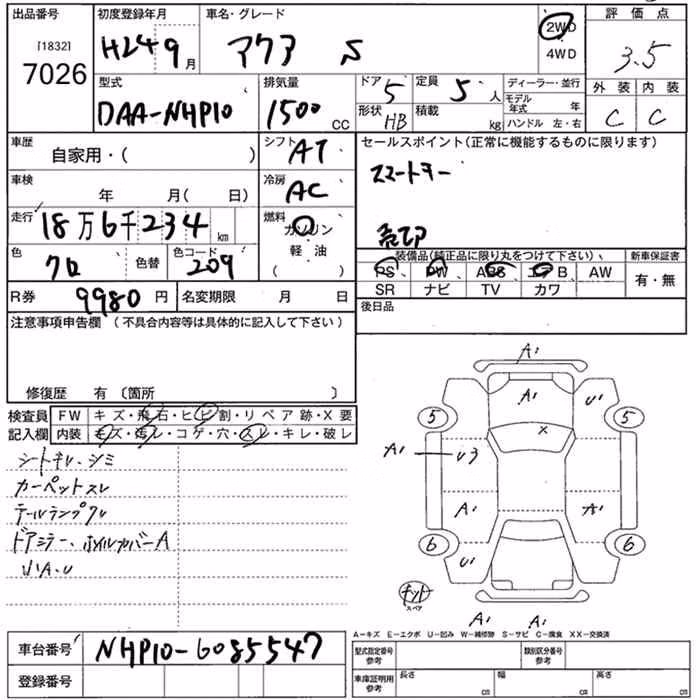 出品番号 初度登録年月 車名・グレード 2WD 評価点
[1832] 4WD
7026 H24 9月 アクア S 3.5
型式 排気量 ドア 5 定員 5人 ディーラー・並行 外装 内装
DAA-NHP10 1500 CC 形状 HB 積載 kg モデル年式 年 C C
ハンドル 左・右
車歴 シフト AT セールスポイント(正常に機能するものに限ります)
自家用・( )
スマートキー
車検 年 月( 日) 冷房 AC
走行 18万6千234km 燃料 ガソリン
軽・油
( )
色 クロ 色替 色コード 209
装備品(純正品に限り丸をつけて下さい) 新車保証書
PS PW ABS エアB AW 有・無
SR ナビ TV カワ
R券 9980円 名変期限 月 日 後日品
注意事項申告欄(不具合内容等は具体的に記入して下さい)
修復歴 有 〔箇所 〕
検査員 FW キズ・飛石・ヒビ割・リペア跡・X要
記入欄 内装 キズ・汚レ・コゲ・穴・スレ・キレ・破レ
シートキレ、シミ
カーペットスレ
テールランプクル
ドアミラー、ホイルカバーA
小A、U
A1
A1 U1
5 5
X
A1 U3
A1 A1
6 6
U1
キット
スペア
A1 A1
A-キズ E-エクボ U-凹み W-補修跡 S-サビ C-腐食 XX-交換済
車台番号 NHP10-6085547
型式指定番号 参考 類別区分番号 参考
登録番号
車庫証明用 参考 長さ cm 幅 cm 高さ cm